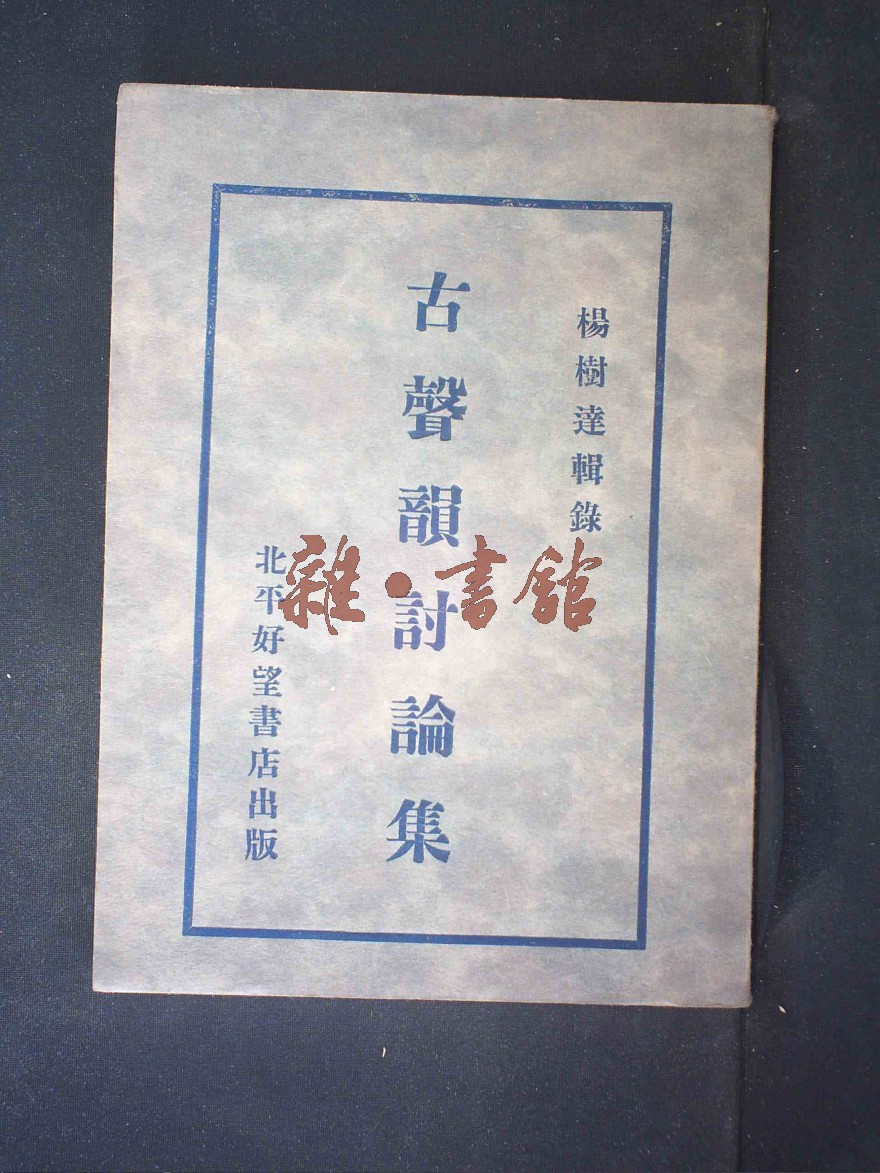 楊樹達輯錄
古聲韻討論集
北平好望書店出版
雜·書館